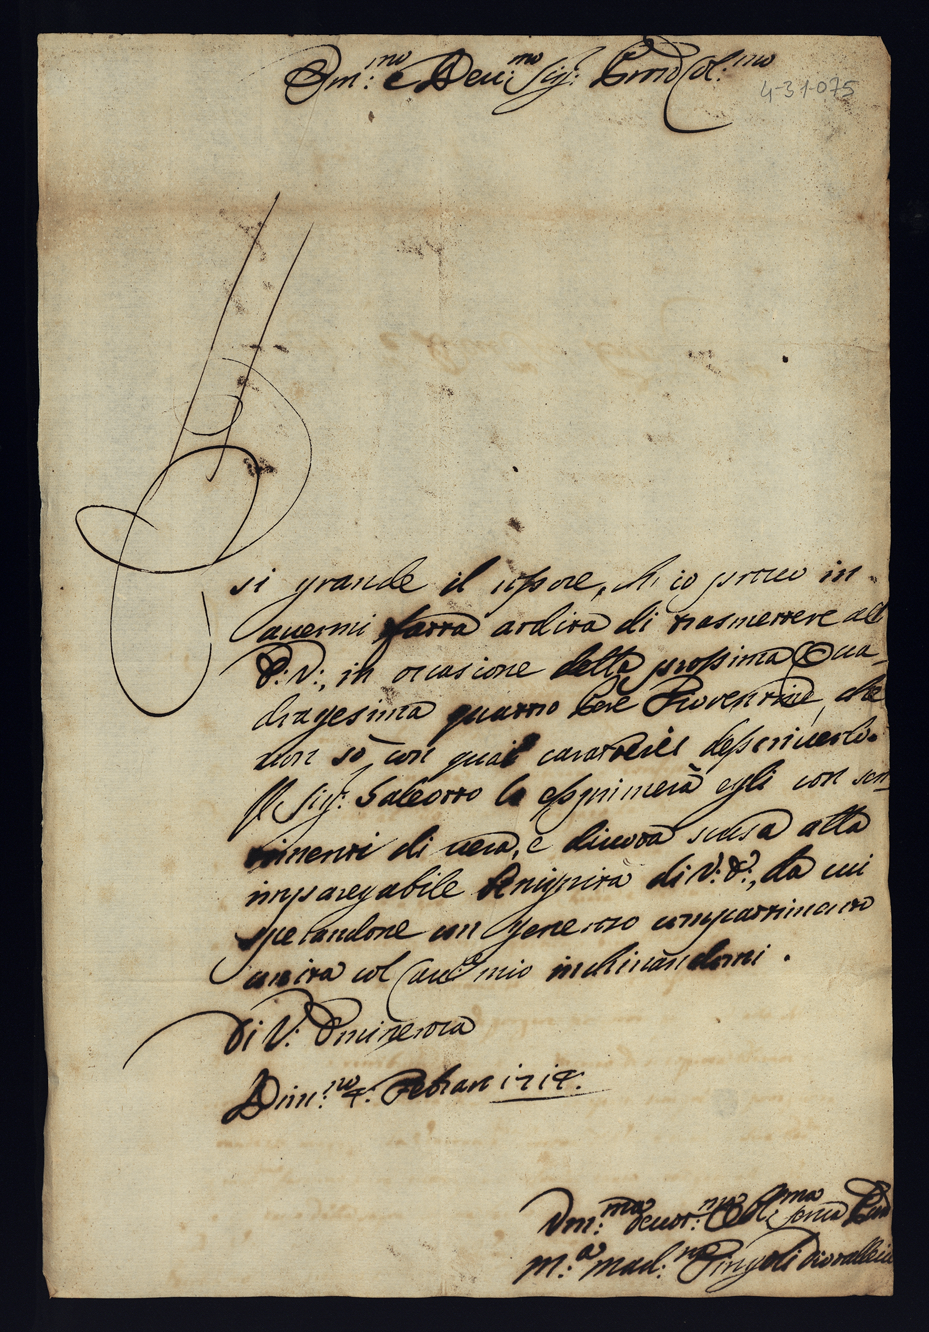 Em:mo e Reu:mo Sig: Prōn Col:mo
4-31-075
È
si grande il rossore, ch io prouo in
auermi fatta ardita di trasmettere all
E: V:, in occasione della prossima Qua-
dragesima quattro Fiorentine, che
non sò con qual carattere desscriuerlo.
Il Sig: la essprimerà egli con sen
timenti di uera, e diuota scusa alla
impareg̃abile Benignità di V: E:, da cui
sperandone un generoso compartimento
unita col Cau: mio inchinandomi.
Di V: Eminenza
Rim:no 4: Febraro 1714:
Vm:ma deuot:ma Obl:ma serua
M:a Mad:na Cingoli